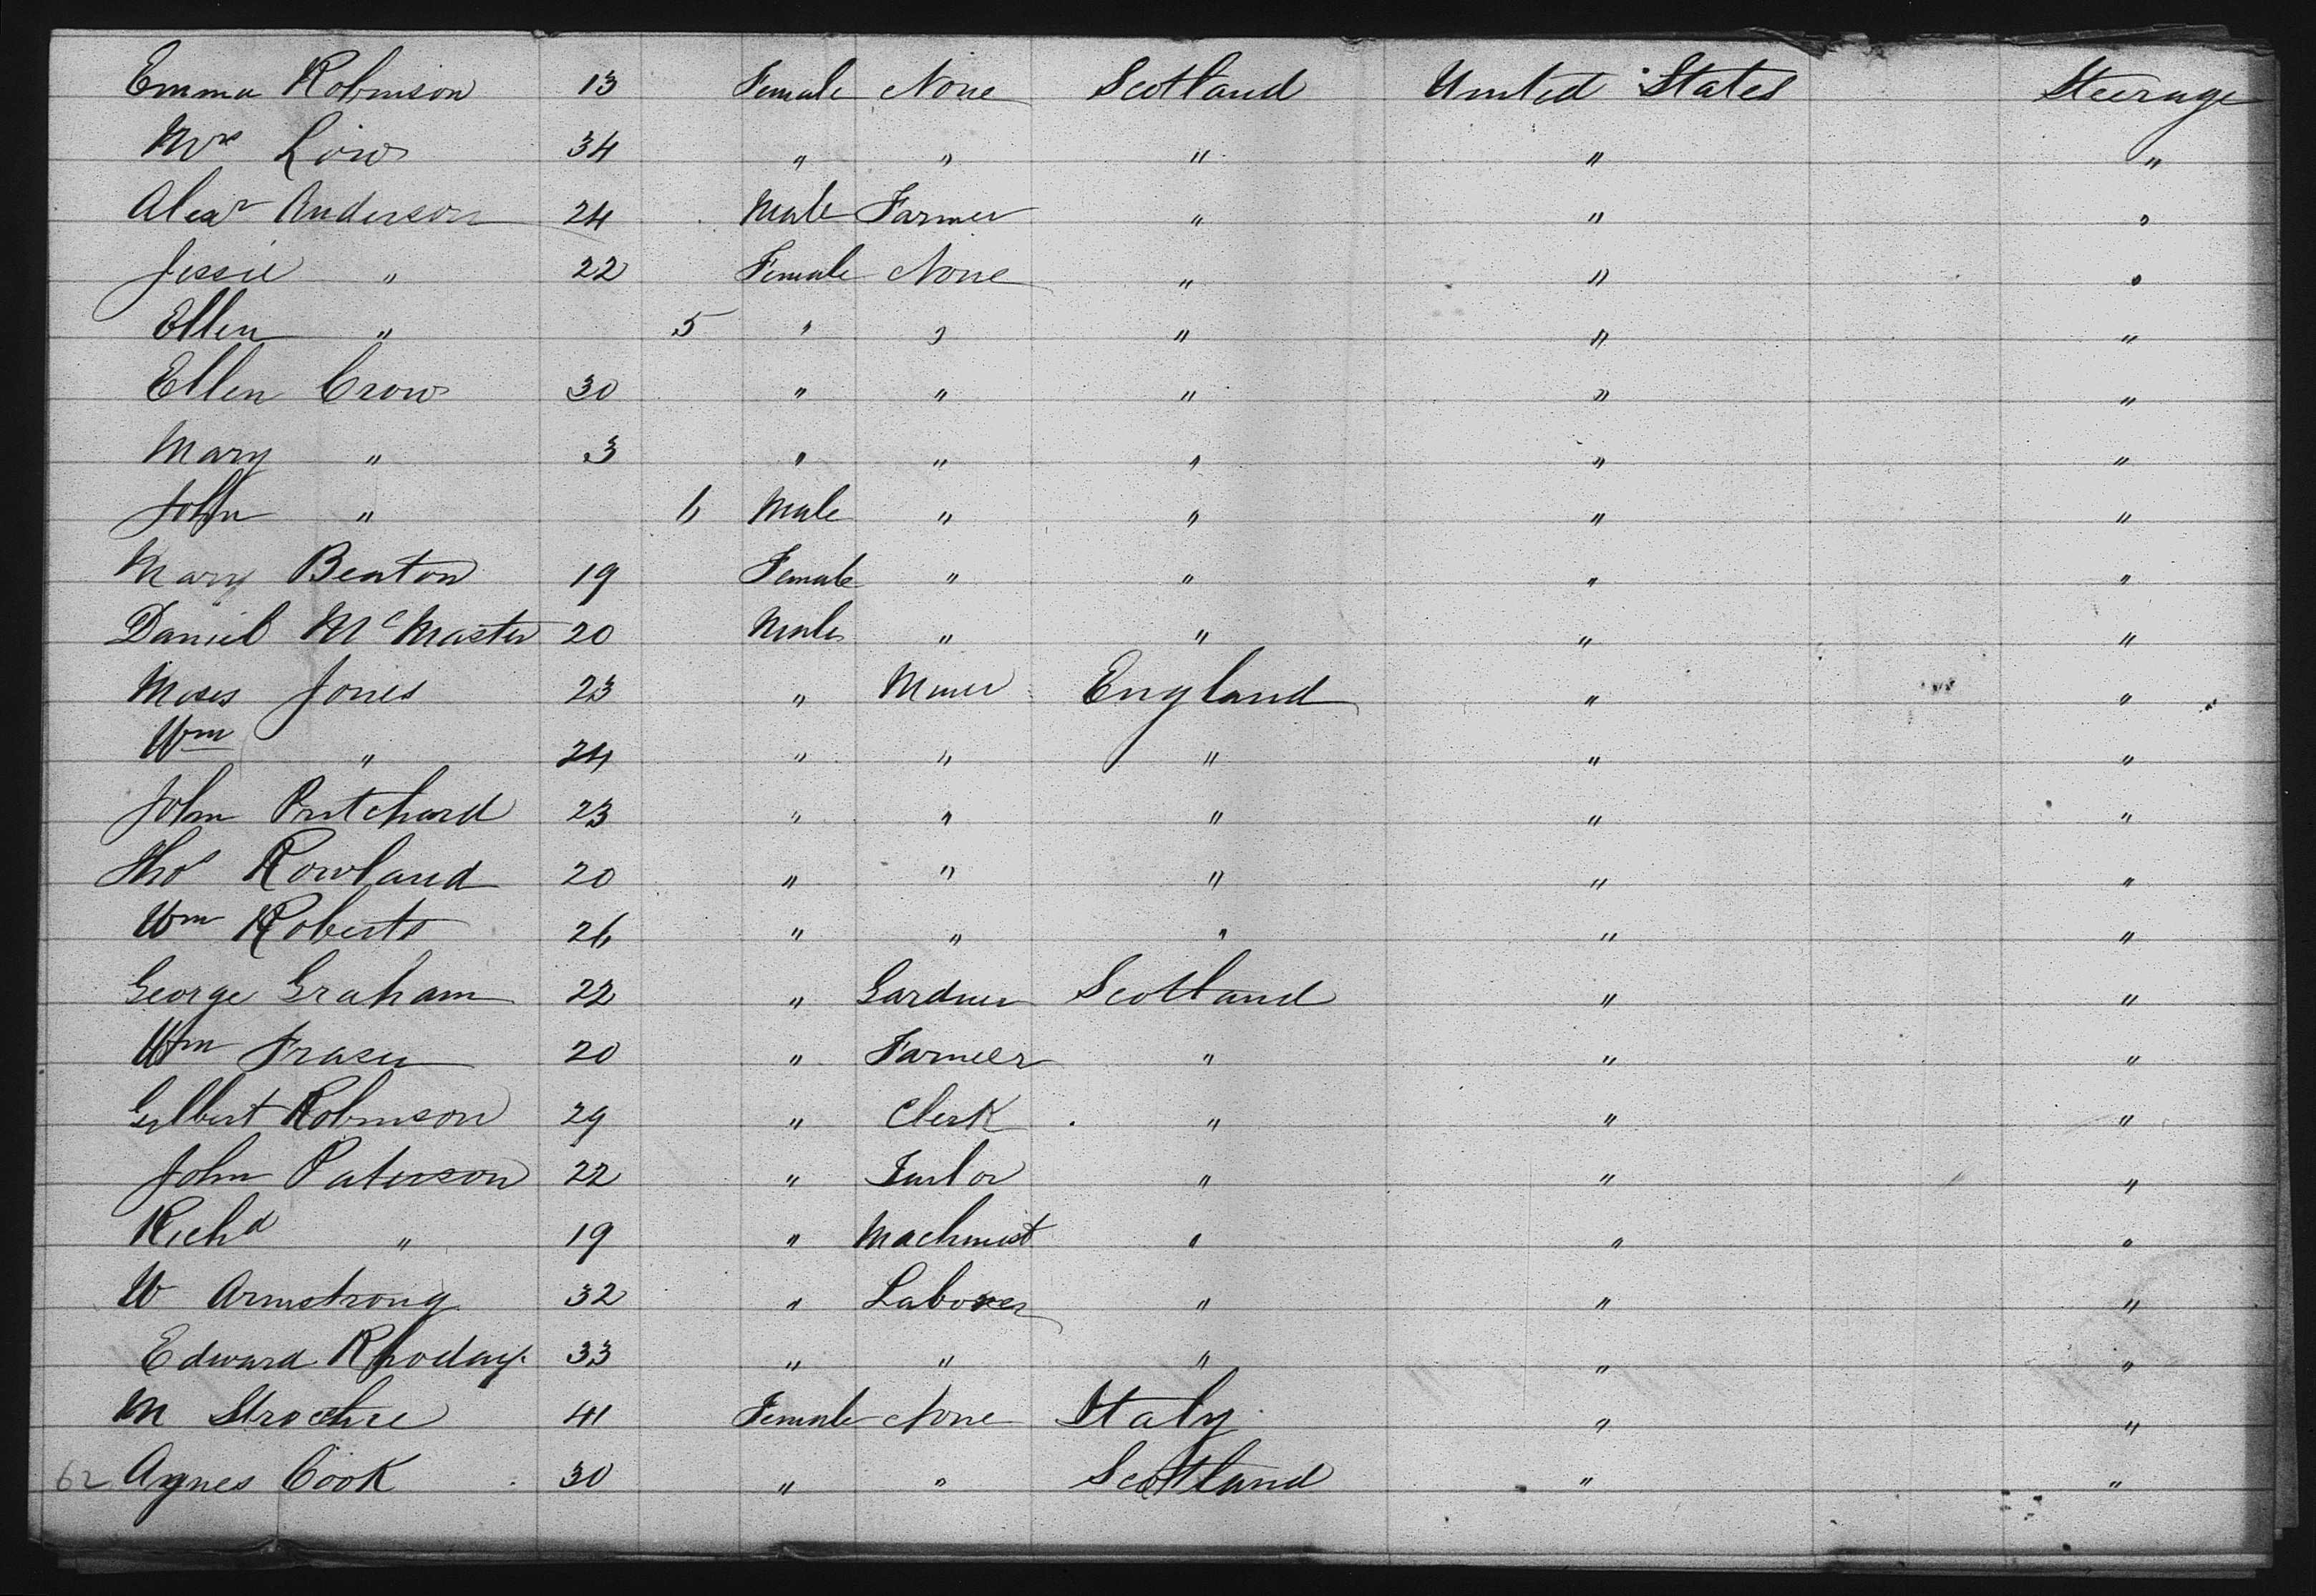 Emma Robinson 13 Female None Scotland United States Steerage
Mrs Low 34 " " " " "
Alexr Anderson 24 Male Farmer " " "
Jessie " 22 Female None " " "
Ellen " 5 " " " " "
Ellen Crow 30 " " " " "
Mary " 3 " " " " "
John " 6 Male " " " "
Mary Beaton 19 Female " " " "
Daniel McMaster 20 Male " " " "
Moses Jones 23 " Miner England " "
Wm " 24 " " " " "
John Pritchard 23 " " " " "
Thos Rowland 20 " " " " "
Wm Roberts 26 " " " " "
George Graham 22 " Gardner Scotland " "
Wm Fraser 20 " Farmeer " " "
Gilbert Robinson 29 " Clerk " " "
John Paterson 22 " Tailor " " "
Richd " 19 " Machinist " " "
W Armstrong 32 " Laborer " " "
Edward 33 " " " " "
M 41 Female None Italy " "
62 Agnes Cook 30 " " Scotland " "